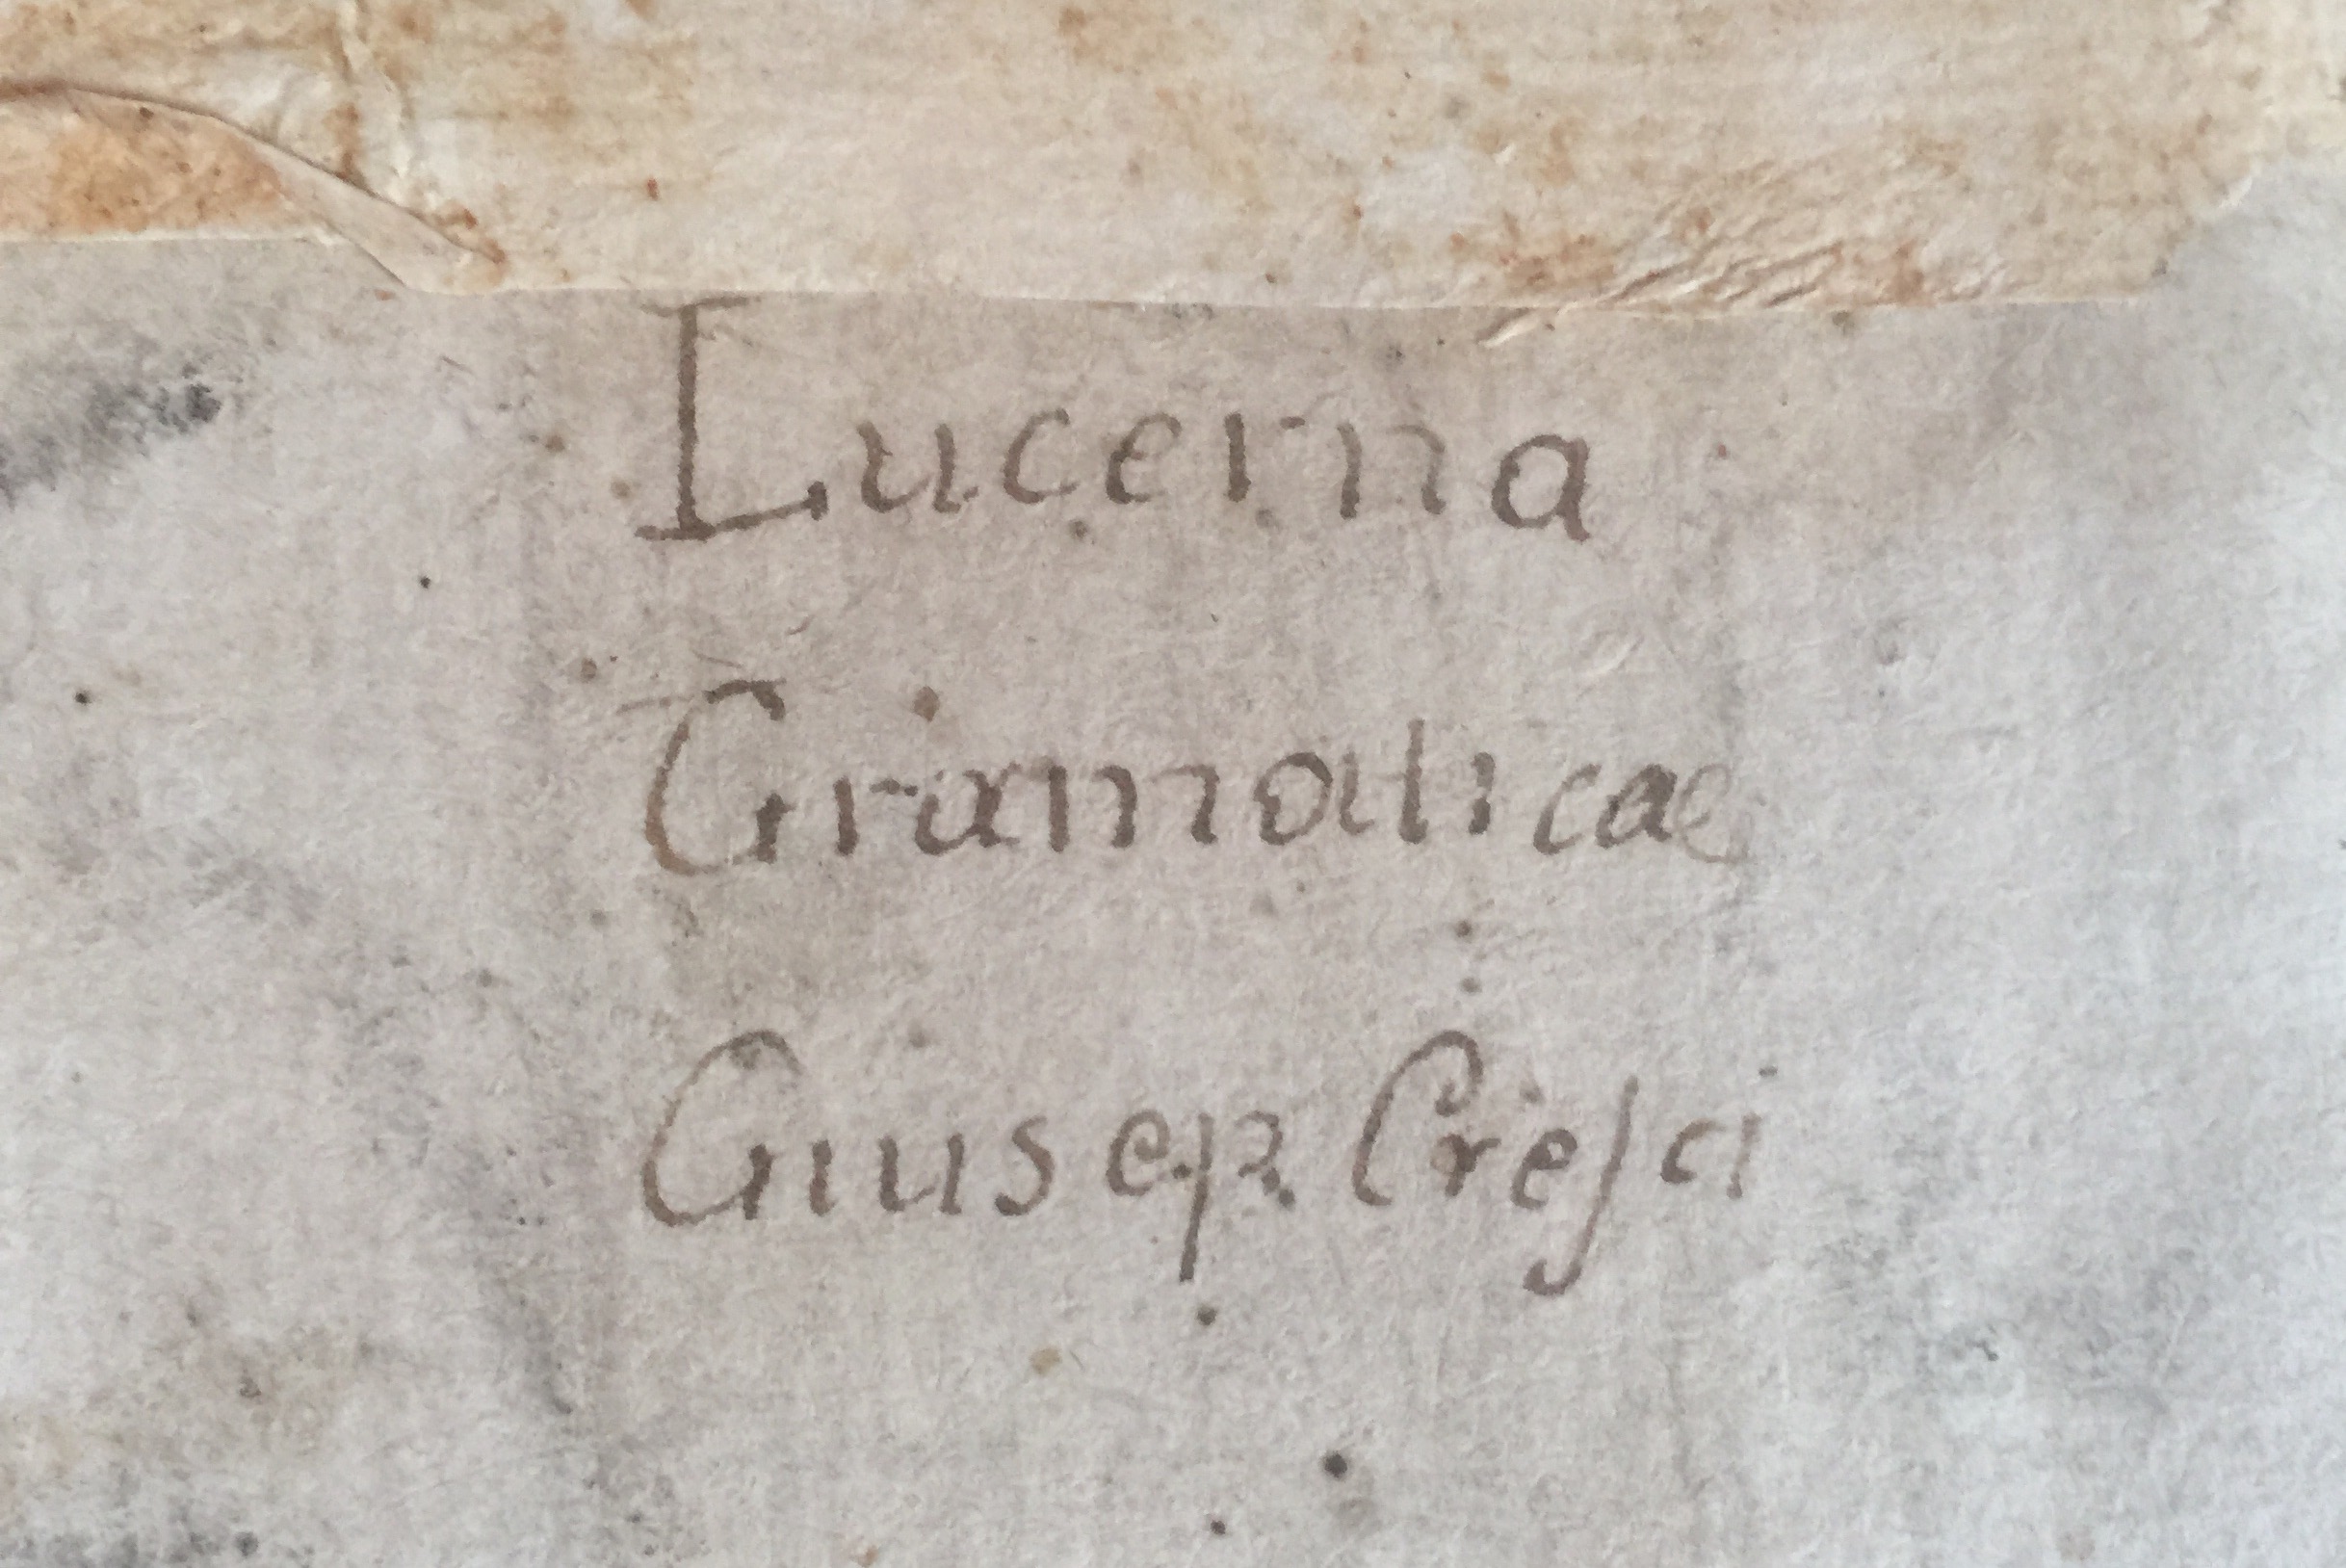 Lucerna
Gramaticae
Giusep. Cresci